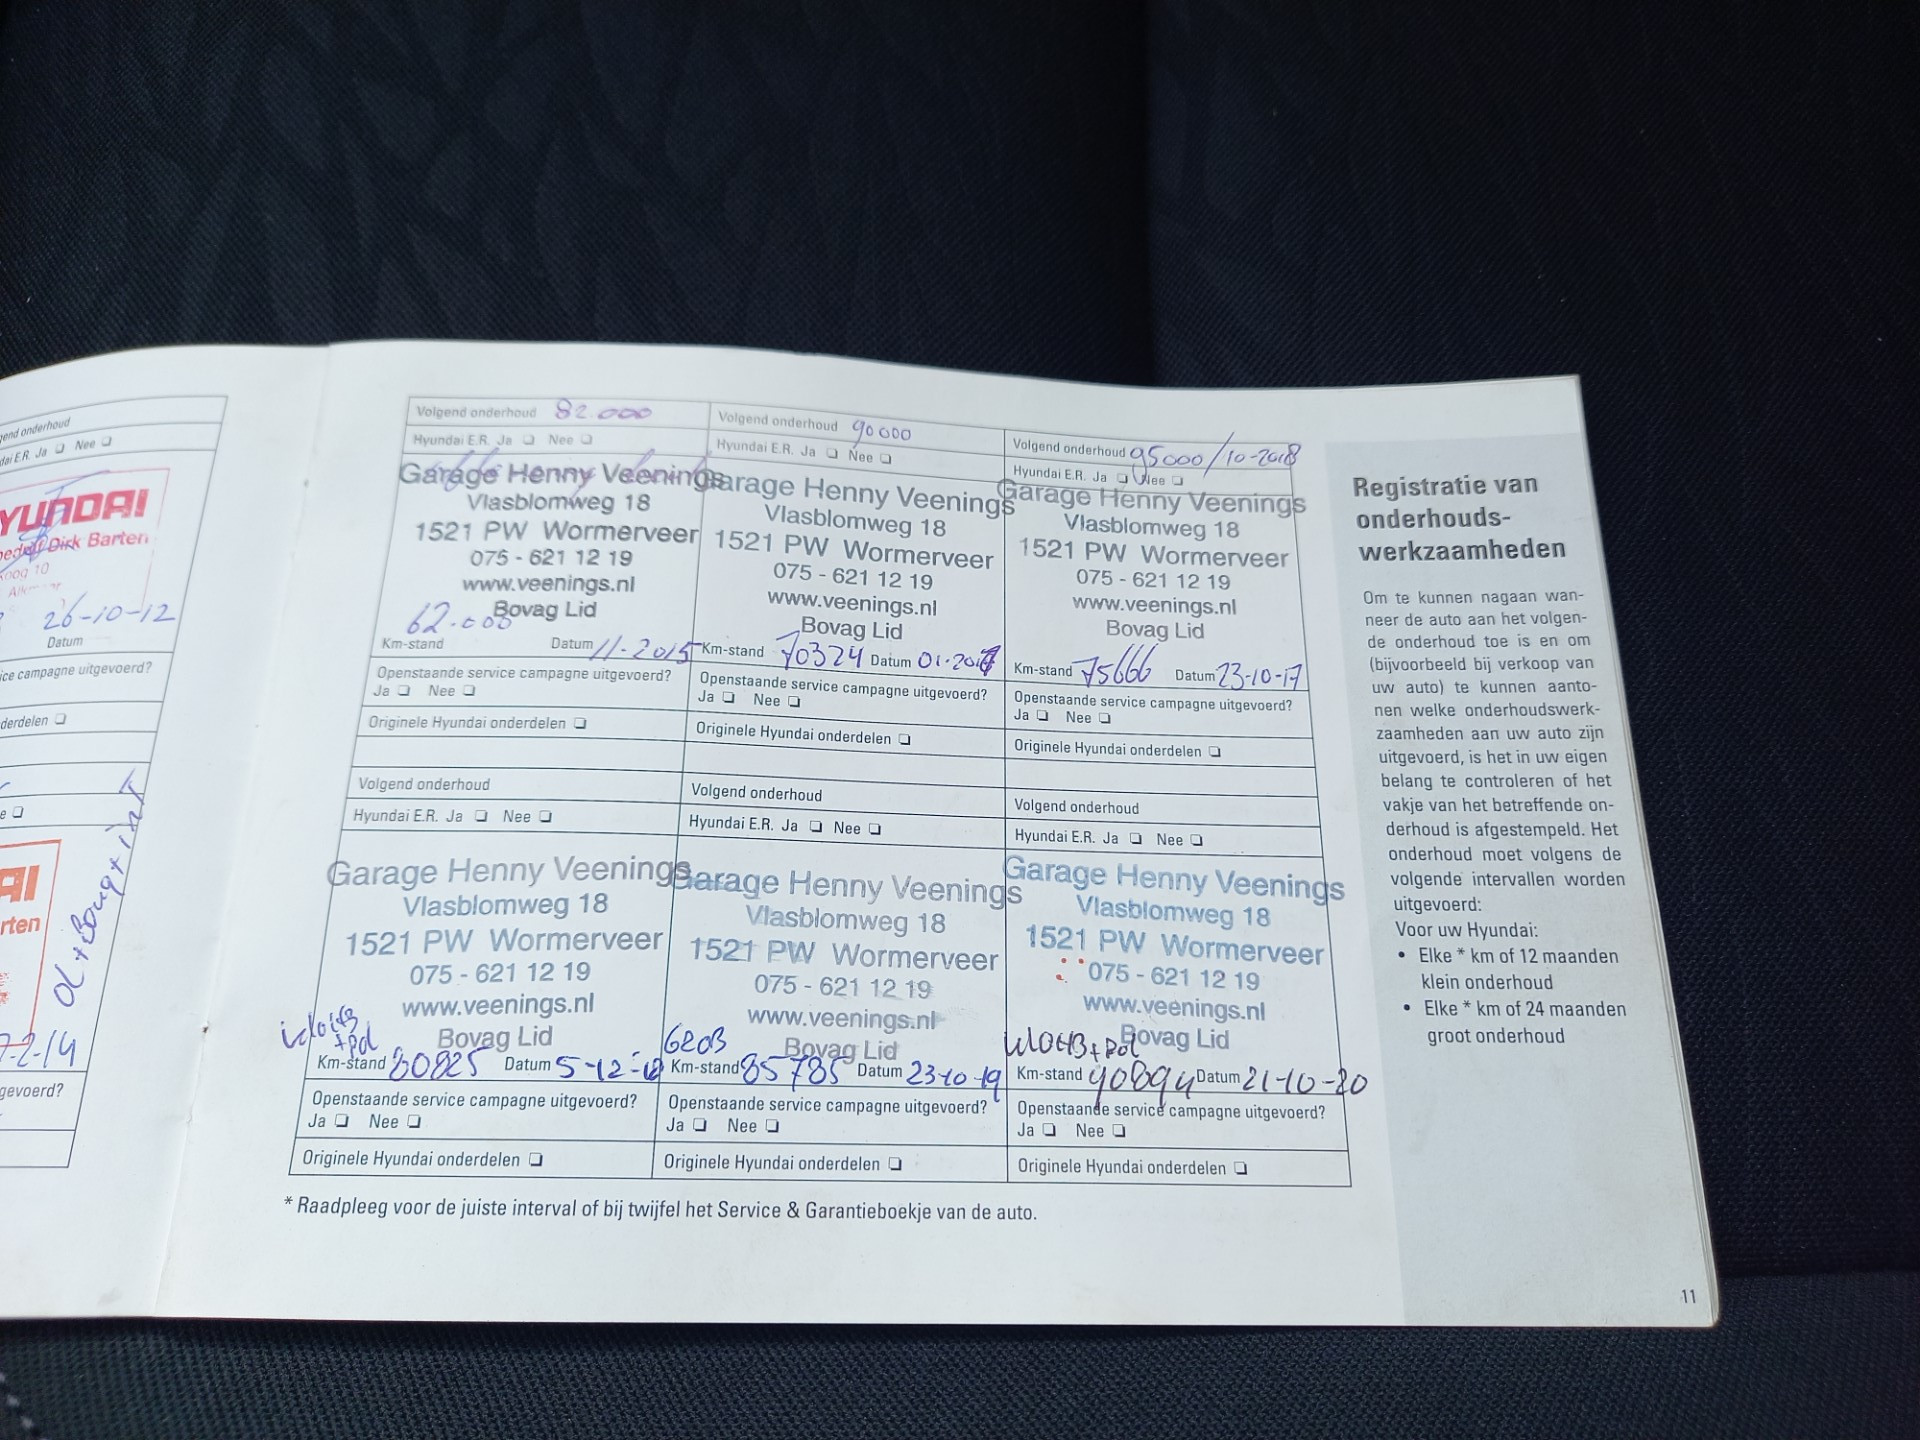 Volgend onderhoud
Hyundai E.R. Ja ❏ Nee ❏
HYUNDAI
Dirk Barten
26-10-12
Datum
service campagne uitgevoerd?
onderdelen ❏
ol + Boug + int
AI
rten
2-14
gevoerd?
Volgend onderhoud 82.000
Hyundai E.R. Ja ❏ Nee ❏
Garage Henny Veenings
Vlasblomweg 18
1521 PW Wormerveer
075 - 621 12 19
www.veenings.nl
Bovag Lid
Km-stand 62.000 Datum 11-2015
Openstaande service campagne uitgevoerd?
Ja ❏ Nee ❏
Originele Hyundai onderdelen ❏
Volgend onderhoud 90000
Hyundai E.R. Ja ❏ Nee ❏
Garage Henny Veenings
Vlasblomweg 18
1521 PW Wormerveer
075 - 621 12 19
www.veenings.nl
Bovag Lid
Km-stand 70324 Datum 01-2017
Openstaande service campagne uitgevoerd?
Ja ❏ Nee ❏
Originele Hyundai onderdelen ❏
Volgend onderhoud 95000/10-2018
Hyundai E.R. Ja ❏ Nee ❏
Garage Henny Veenings
Vlasblomweg 18
1521 PW Wormerveer
075 - 621 12 19
www.veenings.nl
Bovag Lid
Km-stand 75666 Datum 23-10-17
Openstaande service campagne uitgevoerd?
Ja ❏ Nee ❏
Originele Hyundai onderdelen ❏
Volgend onderhoud
Hyundai E.R. Ja ❏ Nee ❏
Garage Henny Veenings
Vlasblomweg 18
1521 PW Wormerveer
075 - 621 12 19
www.veenings.nl
Bovag Lid
+ pol
Km-stand 80825 Datum 5-12-18
Openstaande service campagne uitgevoerd?
Ja ❏ Nee ❏
Originele Hyundai onderdelen ❏
Volgend onderhoud
Hyundai E.R. Ja ❏ Nee ❏
Garage Henny Veenings
Vlasblomweg 18
1521 PW Wormerveer
075 - 621 12 19
www.veenings.nl
Bovag Lid
GROB
Km-stand 85785 Datum 23-10-19
Openstaande service campagne uitgevoerd?
Ja ❏ Nee ❏
Originele Hyundai onderdelen ❏
Volgend onderhoud
Hyundai E.R. Ja ❏ Nee ❏
Garage Henny Veenings
Vlasblomweg 18
1521 PW Wormerveer
075 - 621 12 19
www.veenings.nl
Bovag Lid
+ pol
Km-stand 90894 Datum 21-10-20
Openstaande service campagne uitgevoerd?
Ja ❏ Nee ❏
Originele Hyundai onderdelen ❏
* Raadpleeg voor de juiste interval of bij twijfel het Service & Garantieboekje van de auto.
Registratie van
onderhouds-
werkzaamheden
Om te kunnen nagaan wan-
neer de auto aan het volgen-
de onderhoud toe is en om
(bijvoorbeeld bij verkoop van
uw auto) te kunnen aanto-
nen welke onderhoudswerk-
zaamheden aan uw auto zijn
uitgevoerd, is het in uw eigen
belang te controleren of het
vakje van het betreffende on-
derhoud is afgestempeld. Het
onderhoud moet volgens de
volgende intervallen worden
uitgevoerd:
Voor uw Hyundai:
• Elke * km of 12 maanden
klein onderhoud
• Elke * km of 24 maanden
groot onderhoud
11